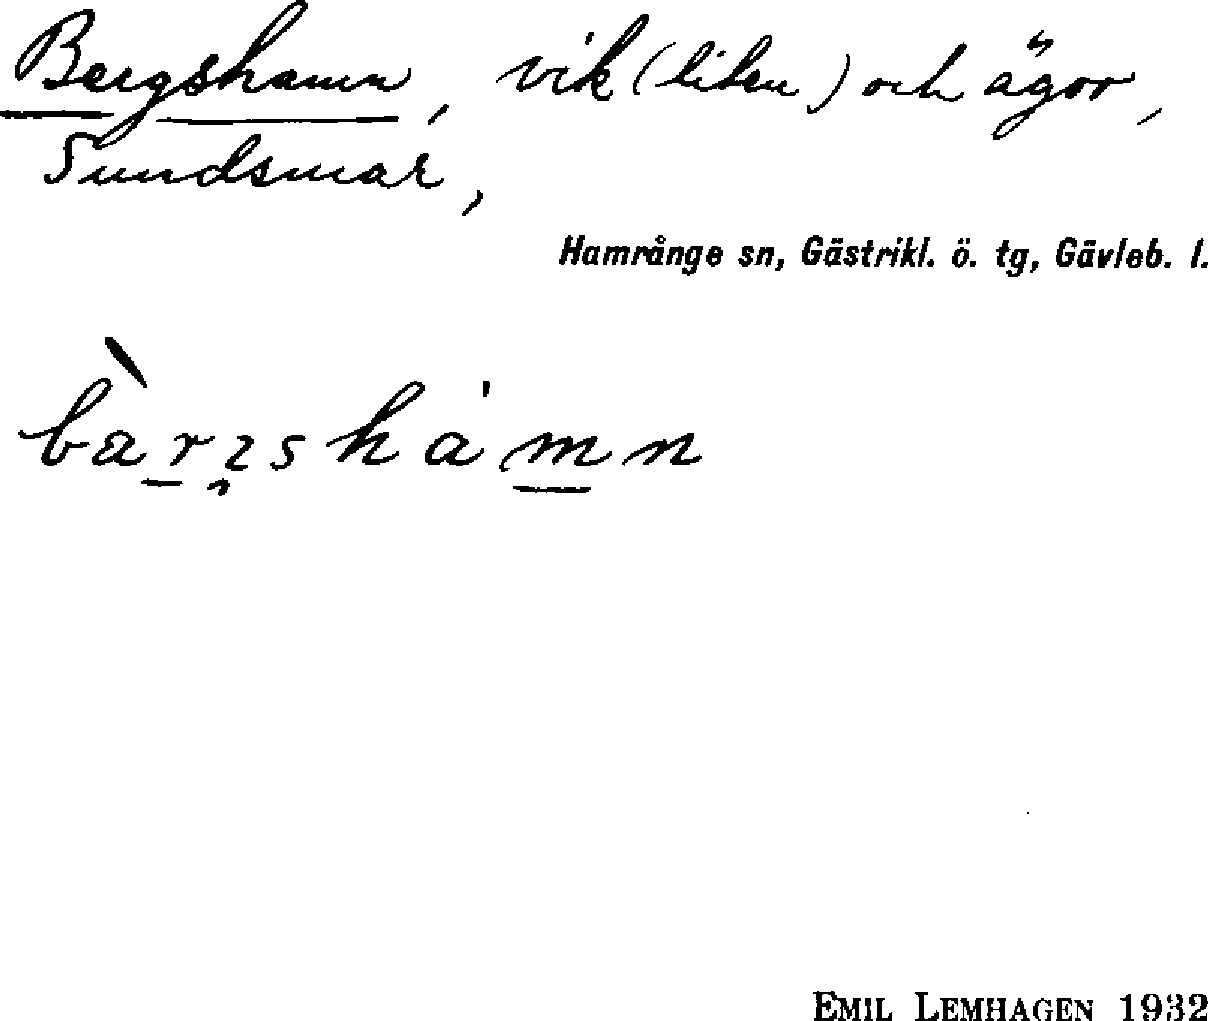 Bergshamn, vik (liten) och ägor,
Sundsmar,
Hamrånge sn, Gästrikl. ö. tg, Gävleb. l.
bàrɪshámn
EMIL LEMHAGEN 1932